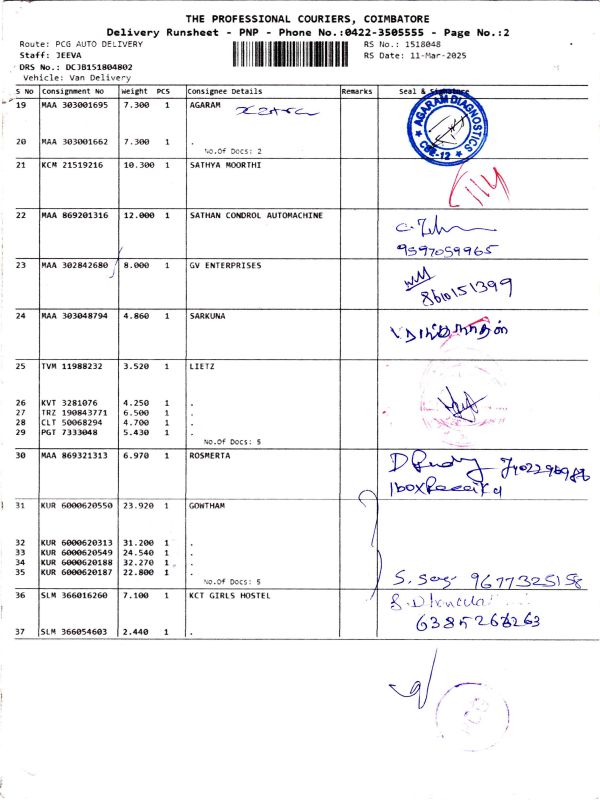 THE PROFESSIONAL COURIERS, COIMBATORE
Delivery Runsheet - PNP - Phone No.:0422-3505555 - Page No.:2
Route: PCG AUTO DELIVERY RS No.: 1518048
Staff: JEEVA RS Date: 11-Mar-2025
DRS No.: DCJB151804802
Vehicle: Van Delivery
S No Consignment No Weight PCS Consignee Details Remarks Seal & Signature
19 MAA 303001695 7.300 1 AGARAM
AGARAM DIAGNOSTICS
CBE-12
20 MAA 303001662 7.300 1 .
No.Of Docs: 2
21 KCM 21519216 10.300 1 SATHYA MOORTHI
22 MAA 869201316 12.000 1 SATHAN CONDROL AUTOMACHINE
9597059965
23 MAA 302842680 8.000 1 GV ENTERPRISES
8610151399
24 MAA 303048794 4.860 1 SARKUNA
25 TVM 11988232 3.520 1 LIETZ
26 KVT 3281076 4.250 1 .
27 TRZ 190843771 6.500 1 .
28 CLT 50068294 4.700 1 .
29 PGT 7333048 5.430 1 .
No.Of Docs: 5
30 MAA 869321313 6.970 1 ROSMERTA
31 KUR 6000620550 23.920 1 GOWTHAM
32 KUR 6000620313 31.200 1 .
33 KUR 6000620549 24.540 1 .
34 KUR 6000620188 32.270 1 .
35 KUR 6000620187 22.800 1 .
No.Of Docs: 5
9677325158
36 SLM 366016260 7.100 1 KCT GIRLS HOSTEL
6385268263
37 SLM 366054603 2.440 1 .